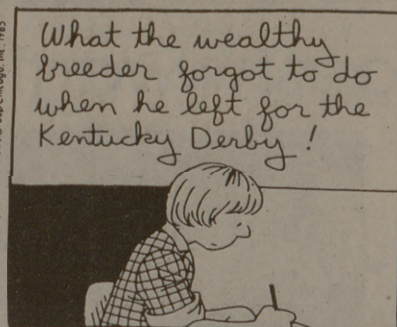 What the wealthy
breeder forgot to do
when he left for the
Kentucky Derby!